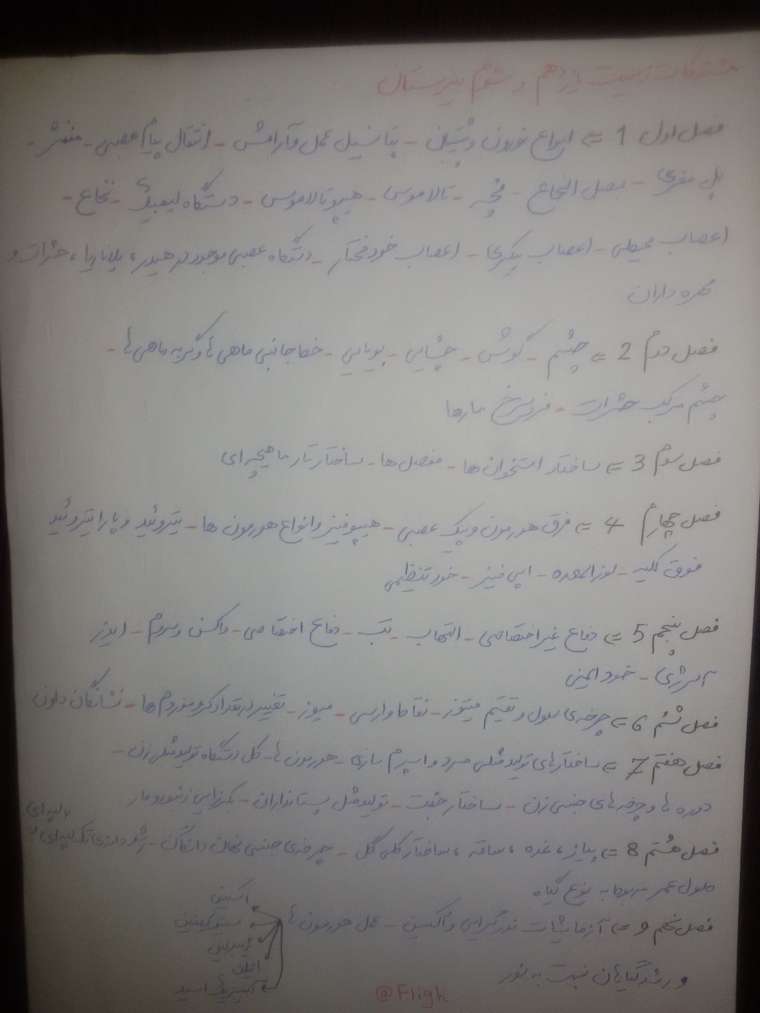 مشترکات زیست یازدهم و سوم دبیرستان
فصل اول 1 = انواع نورون و پتانسیل - پتانسیل عمل و آرامش - انتقال پیام عصبی - مغز -
پل مغزی - بصل النخاع - مخچه - تالاموس - هیپوتالاموس - دستگاه لیمبیک - نخاع -
اعصاب محیطی - اعصاب پیکری - اعصاب خودمختار - دستگاه عصبی موجود در هیدر، پلاناریا، حشرات و
مهره داران
فصل دوم 2 = چشم - گوش - چشایی - بویایی - خط جانبی ماهی ها و گربه ماهی ها -
چشم مرکب حشرات - فروسرخ مارها
فصل سوم 3 = ساختار استخوان ها - مفصل ها - ساختار تار ماهیچه ای
فصل چهارم 4 = فرق هورمون و پیک عصبی - هیپوفیز و انواع هورمون ها - تیروئید و پاراتیروئید
فوق کلیه - لوزالمعده - اپی فیز - خود تنظیمی
فصل پنجم 5 = دفاع غیر اختصاصی - التهاب - تب - دفاع اختصاصی - واکسن و سرم - ایدز
آلرژی - خود ایمنی
فصل ششم 6 = چرخه ی سلول و تقسیم میتوز - نقاط وارسی - میوز - تغییر در تعداد کروموزوم ها - نشانگان داون
فصل هفتم 7 = ساختارهای تولید مثلی مرد و اسپرم سازی - هورمون ها - کل دستگاه تولید مثلی زن -
دوره ها و چرخه های جنسی زن - ساختار جفت - تولید مثل پستانداران - بکرزایی زنبور و مار
فصل هشتم 8 = پیاز، غده، ساقه، ساختار کلی گل - چرخه ی جنسی نهان دانگان - رشد دانه ی تک لپه ای و دو لپه ای
طول عمر مربوط به نوع گیاه
فصل نهم 9 = آزمایشات نورگرایی و اکسین - عمل هورمون ها
اکسین
سیتوکینین
جیبرلین
اتیلن
آبسیزیک اسید
و رشد گیاهان نسبت به نور
@Fligh